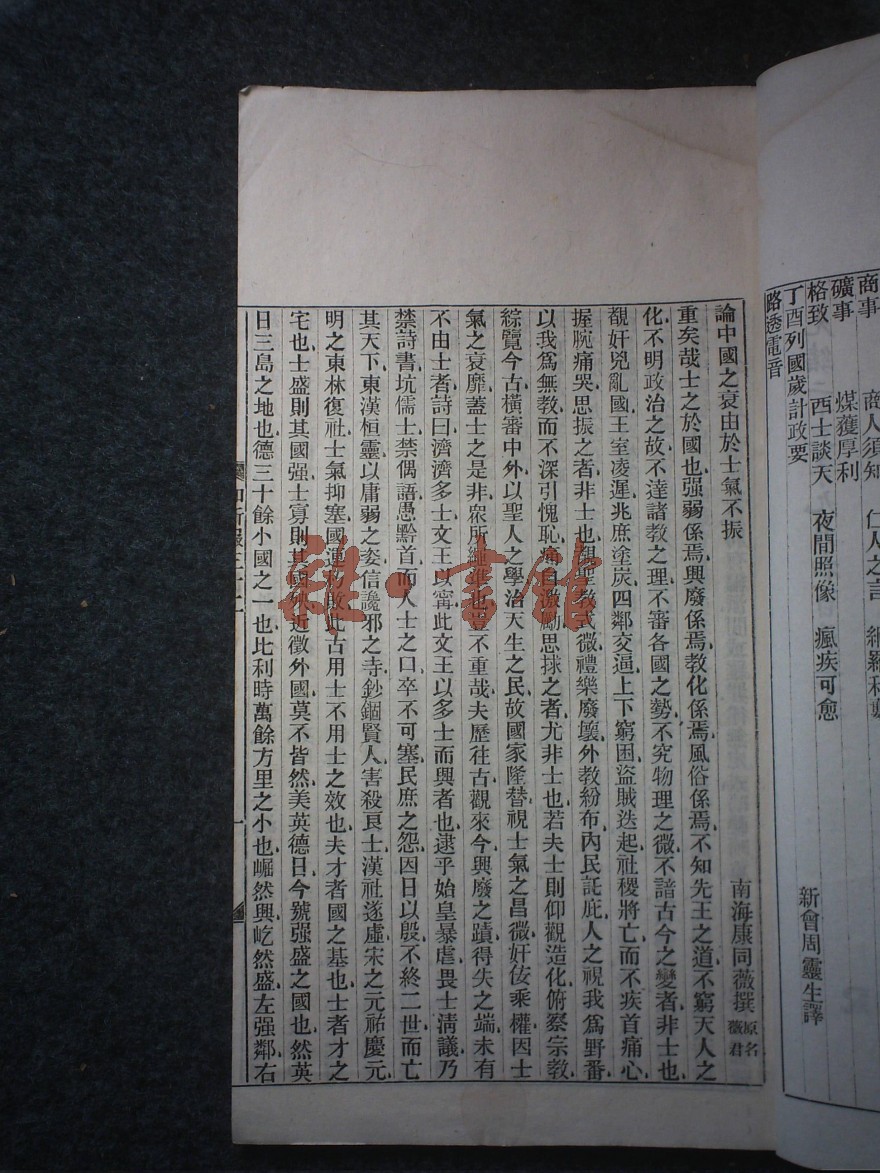 商事　商人須知　仁人之言
礦事　煤獲厚利
格致　西士談天　夜間照像　瘋疾可愈
丁酉列國歲計政要　新會周靈生譯
路透電音
論中國之衰由於士氣不振
南海康同薇撰　原名薇君
重矣哉士之於國也强弱係焉興廢係焉教化係焉風俗係焉不知先王之道不窮天人之
化不明政治之故不達諸教之理不審各國之勢不究物理之微不諳古今之變者非士也
覩奸兇亂國王室凌遲兆庶塗炭四鄰交逼上下窮困盜賊迭起社稷將亡而不疾首痛心
握腕痛哭思振之者非士也覩聖教式微禮樂廢壞外教紛布內民託庇人之視我爲野番
以我爲無教而不深引愧恥痛自激勵思捄之者尤非士也若夫士則仰觀造化俯察宗教
綜覽今古橫審中外以聖人之學治天生之民故國家隆替視士氣之昌微奸佞乘權因士
氣之衰靡蓋士之是非衆所繩準也豈不重哉夫歷往古觀來今興廢之蹟得失之端未有
不由士者詩曰濟濟多士文王以甯此文王以多士而興者也逮乎始皇暴虐畏士淸議乃
禁詩書坑儒士禁偶語愚黔首而人士之口卒不可塞民庶之怨因日以殷不終二世而亡
其天下東漢桓靈以庸弱之姿信讒邪之寺鈔錮賢人害殺良士漢社遂虛宋之元祐慶元
明之東林復社士氣抑塞國運扐敗此古用士不用士之效也夫才者國之基也士者才之
宅也士盛則其國强士寡則其國殃近徵外國莫不皆然美英德日今號强盛之國也然英
日三島之地也德三十餘小國之一也比利時萬餘方里之小也崛然興屹然盛左强鄰右
知新報三十二
一
雜·書館